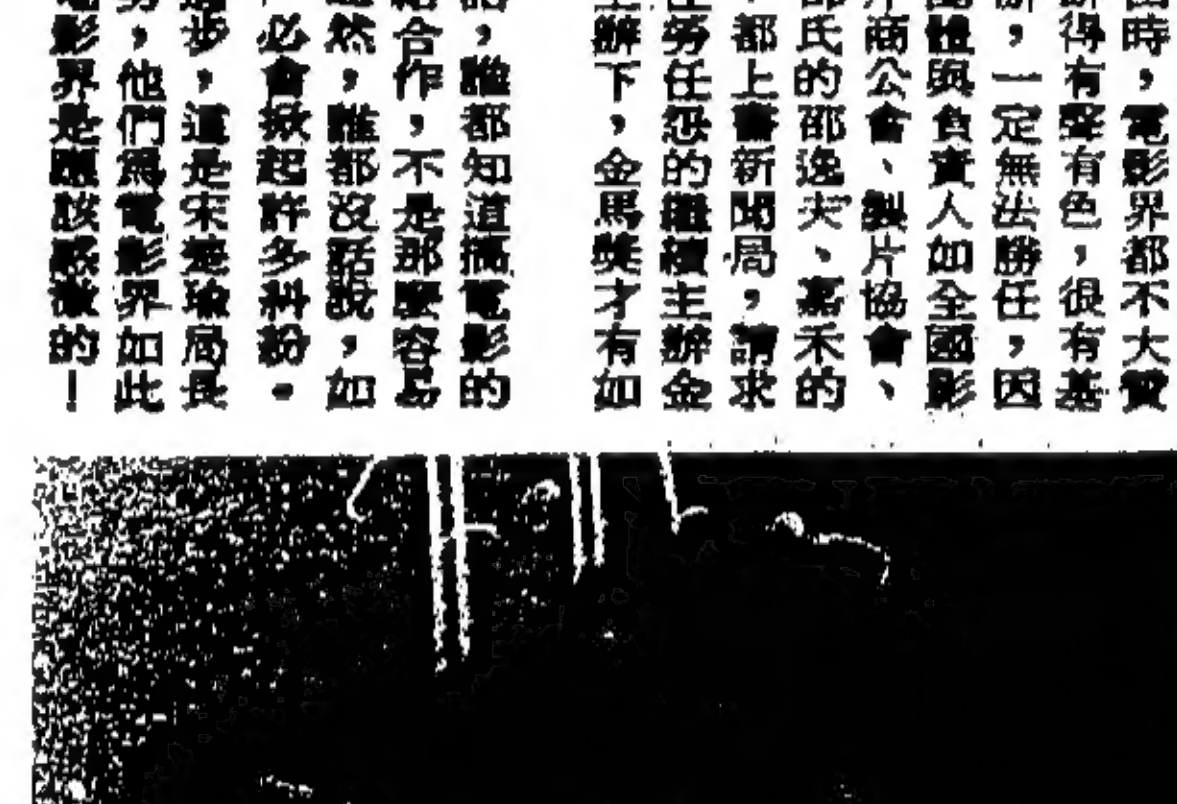 時，電影界都不大贊
得有聲有色，很有基
，一定無法勝任，因
團體與負責人如全國影
片商公會、製片協會、
邵氏的邵逸夫、嘉禾的
，都上書新聞局，請求
任勞任怨的繼續主辦金
主辦下，金馬獎才有如
，誰都知道搞電影的
合作，不是那麼容易
然，誰都沒話說，如
必會掀起許多糾紛。
步，這是宋楚瑜局長
，他們為電影界如此
電影界是應該感激的！